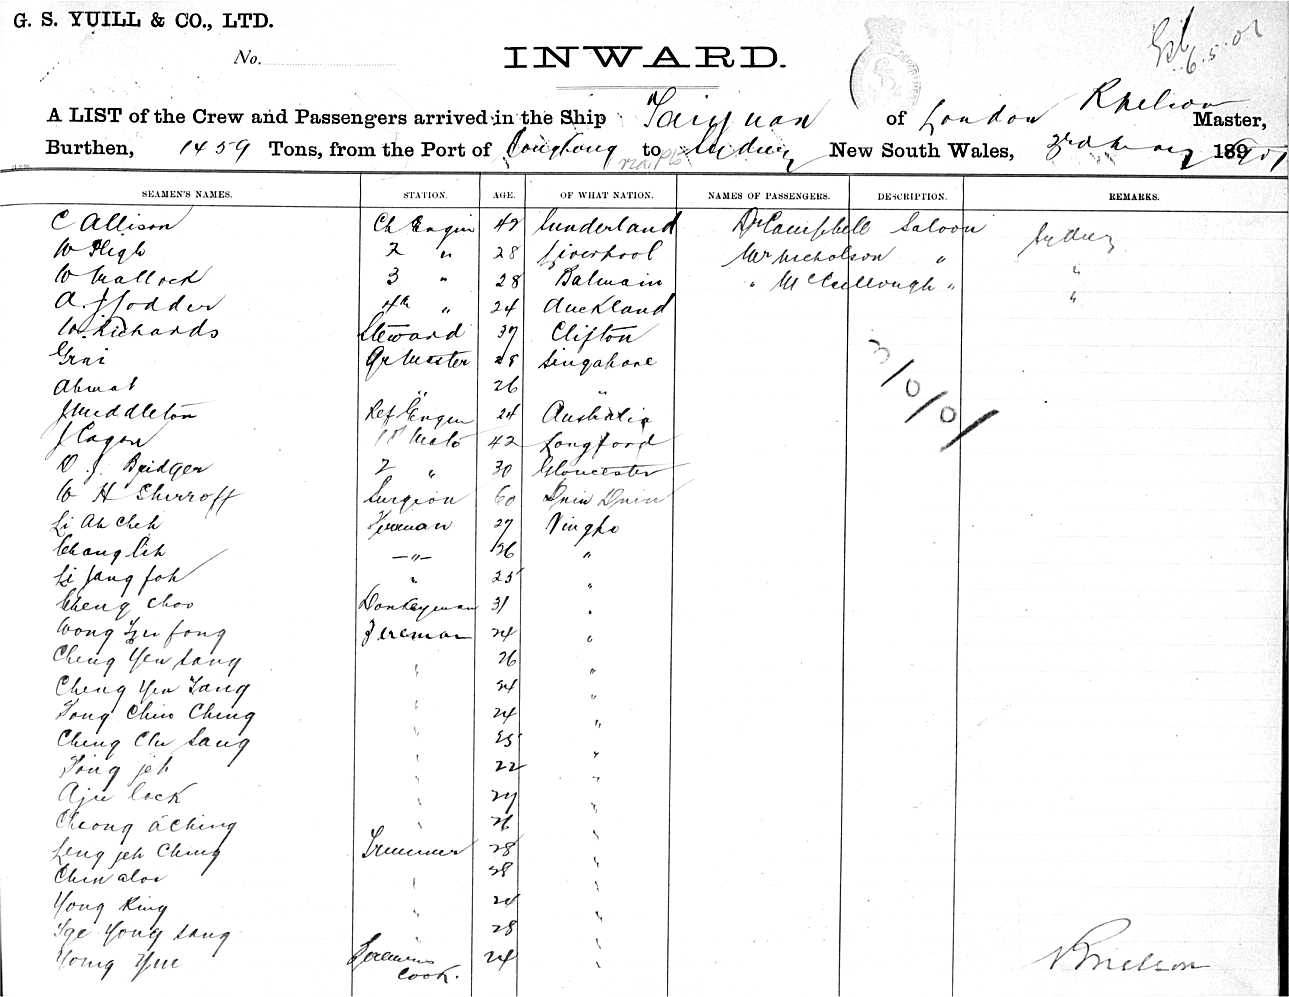 G. S. YUILL & CO., LTD.
No.
INWARD.
6.5.01
A LIST of the Crew and Passengers arrived in the Ship Taiyuan of London R Nelson Master,
Burthen, 1459 Tons, from the Port of Hongkong to Sydney New South Wales, 3rd May 1901
SEAMEN'S NAMES. STATION. AGE. OF WHAT NATION. NAMES OF PASSENGERS. DESCRIPTION. REMARKS.
C Allison Ch Engin 42 Sunderland Dr Campbell Saloon Sydney
W High 2 " 28 Liverpool Mr Nicholson " "
W Mallock 3 " 28 Balmain " McCullough " "
A. J Fodder 4th " 24 Auckland
W. Richards Steward 37 Clifton
Grai Qr Master 28 Singapore
Ahmat " 26 "
J Middleton Ref Engin 24 Australia
J Eagar 1st Mate 42 Longford
D. J. Bridger 2 " 30 Gloucester
W H Sherroff Surgeon 60 Duin Duin
Li Ah Cheh Fireman 27 Ningpo
Chang Lih —"— 26 "
Li Jang foh " 25 "
Cheng Choo Donkeyman 31 "
Wong Tzu fong Fireman 24 "
Cheng Yen Sang " 26 "
Cheng Yen Tang " 24 "
Tong Chin Cheng " 24 "
Cheng Chu Sang " 25 "
Tong jeh " 22 "
Aju Cock " 27 "
Cheong a Ching " 26 "
Leng jeh Ching Trimmer 28 "
Chin aloi " 28 "
Yong King " 24 "
Tge Yong Sang " 28 "
Yong Yue Firemens Cook. 24 "
3/0/0/
R Nelson